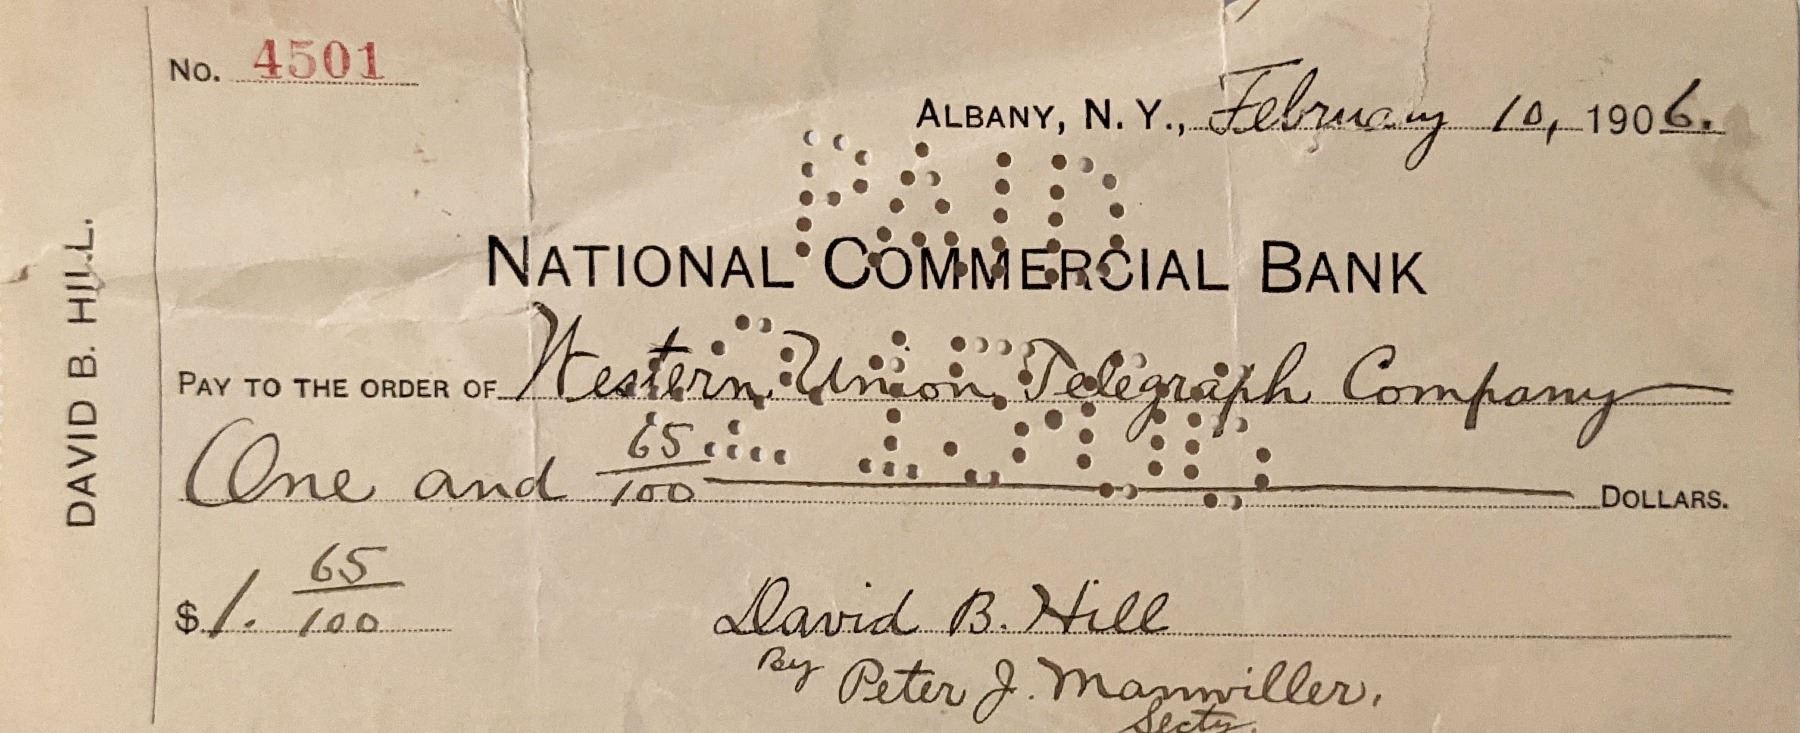 No. 4501
ALBANY, N. Y., February 10, 1906.
PAID
NATIONAL COMMERCIAL BANK
PAY TO THE ORDER OF Western Union Telegraph Company
One and 65/100 DOLLARS.
$1. 65/100
David B. Hill
By Peter J. Manwiller,
Secty.
DAVID B. HILL.